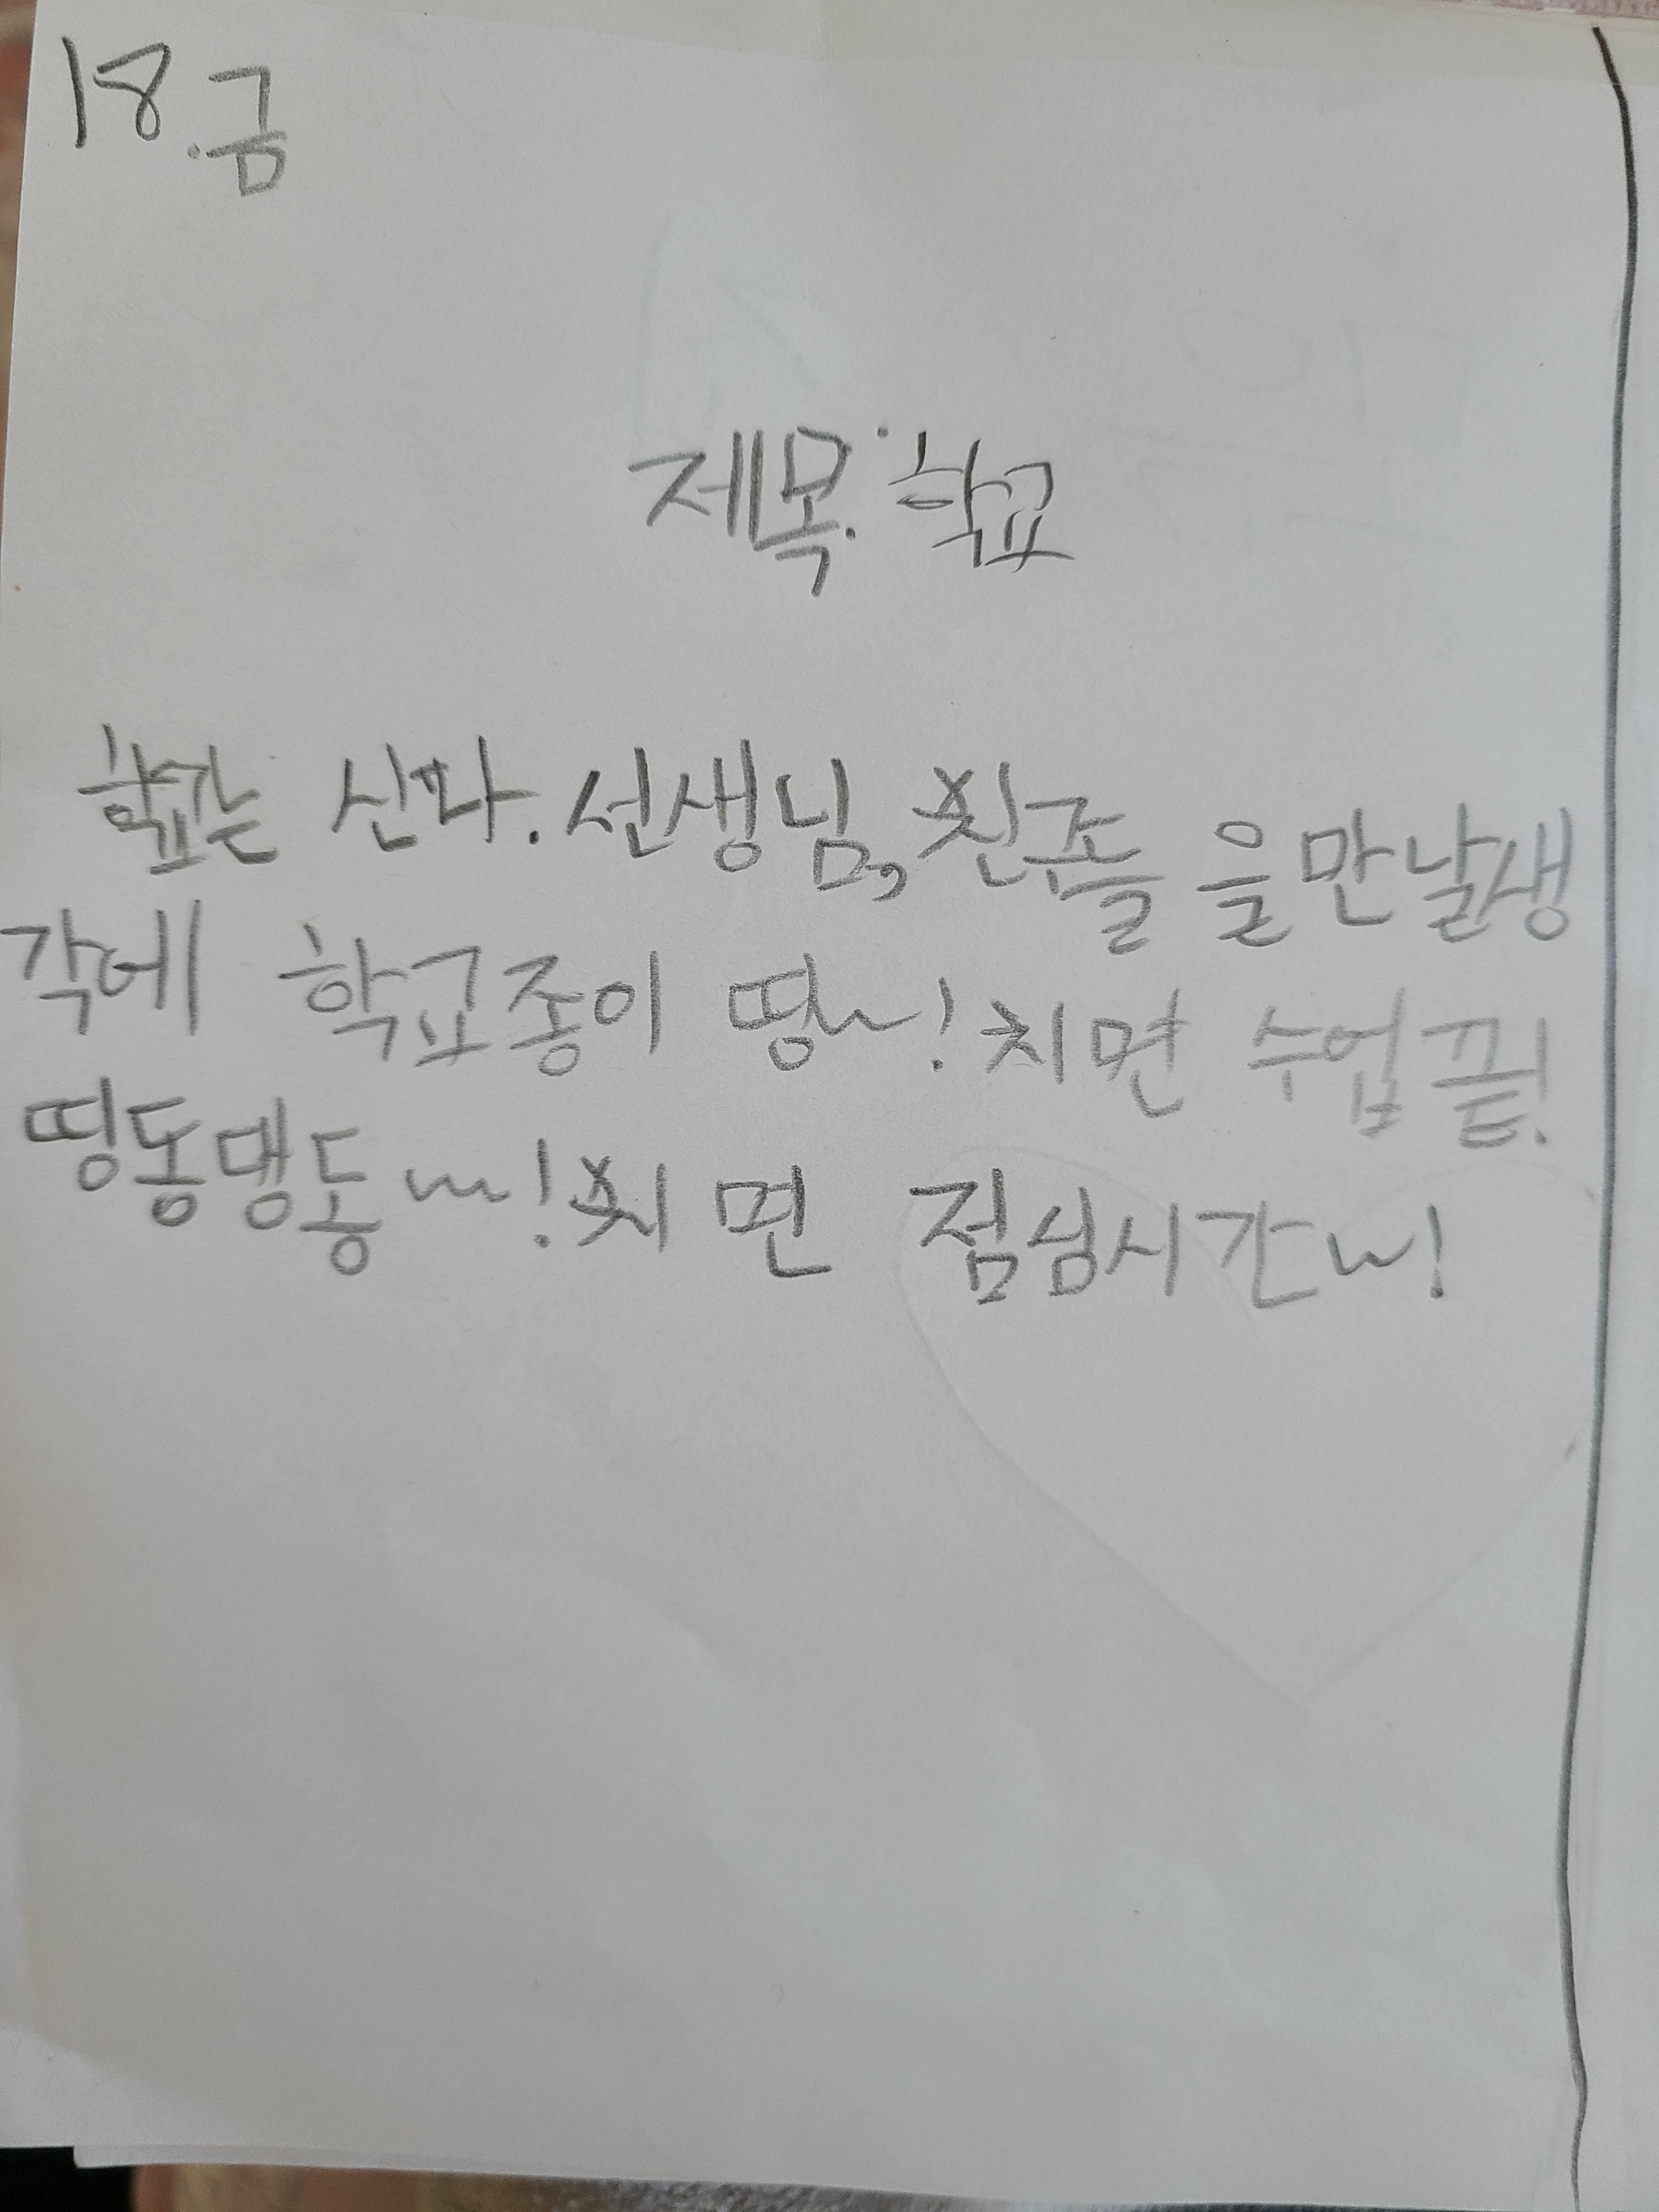 18.금
제목:학교
학교는 신나다. 선생님, 친구들을 만날생
각에 학교종이 땡~! 치면 수업 끝!
띵동댕동~! 치면 점심시간~!